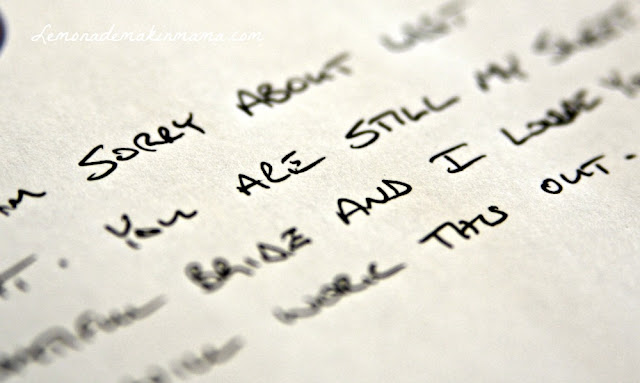 Lemonademakinmama.com
AM SORRY ABOUT LAST
YOU ARE STILL MY SWEET
BRIDE AND I LOVE YOU
WORK THIS OUT.